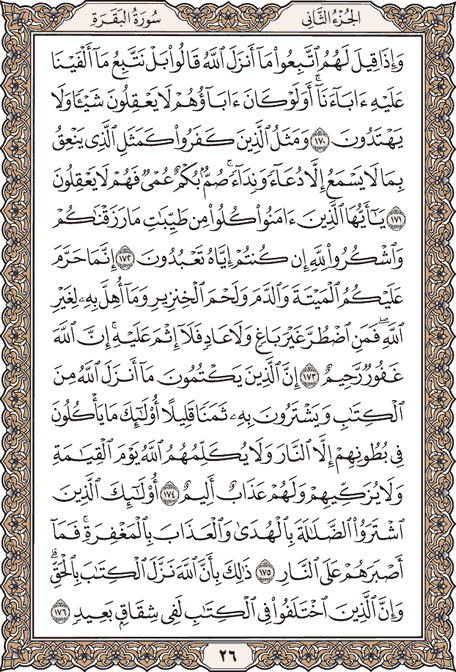 سُورَةُ البَقَرَةِ
الجُزْءُ الثَّانِي
وَإِذَا قِيلَ لَهُمُ ٱتَّبِعُوا۟ مَآ أَنزَلَ ٱللَّهُ قَالُوا۟ بَلْ نَتَّبِعُ مَآ أَلْفَيْنَا
عَلَيْهِ ءَابَآءَنَآۗ أَوَلَوْ كَانَ ءَابَآؤُهُمْ لَا يَعْقِلُونَ شَيْـًٔا وَلَا
يَهْتَدُونَ ١٧٠ وَمَثَلُ ٱلَّذِينَ كَفَرُوا۟ كَمَثَلِ ٱلَّذِى يَنْعِقُ
بِمَا لَا يَسْمَعُ إِلَّا دُعَآءً وَنِدَآءًۚ صُمٌّۢ بُكْمٌ عُمْىٌ فَهُمْ لَا يَعْقِلُونَ
١٧١ يَـٰٓأَيُّهَا ٱلَّذِينَ ءَامَنُوا۟ كُلُوا۟ مِن طَيِّبَـٰتِ مَا رَزَقْنَـٰكُمْ
وَٱشْكُرُوا۟ لِلَّهِ إِن كُنتُمْ إِيَّاهُ تَعْبُدُونَ ١٧٢ إِنَّمَا حَرَّمَ
عَلَيْكُمُ ٱلْمَيْتَةَ وَٱلدَّمَ وَلَحْمَ ٱلْخِنزِيرِ وَمَآ أُهِلَّ بِهِۦ لِغَيْرِ
ٱللَّهِۖ فَمَنِ ٱضْطُرَّ غَيْرَ بَاغٍ وَلَا عَادٍ فَلَآ إِثْمَ عَلَيْهِۚ إِنَّ ٱللَّهَ
غَفُورٌ رَّحِيمٌ ١٧٣ إِنَّ ٱلَّذِينَ يَكْتُمُونَ مَآ أَنزَلَ ٱللَّهُ مِنَ
ٱلْكِتَـٰبِ وَيَشْتَرُونَ بِهِۦ ثَمَنًا قَلِيلًا أُو۟لَـٰٓئِكَ مَا يَأْكُلُونَ
فِى بُطُونِهِمْ إِلَّا ٱلنَّارَ وَلَا يُكَلِّمُهُمُ ٱللَّهُ يَوْمَ ٱلْقِيَـٰمَةِ
وَلَا يُزَكِّيهِمْ وَلَهُمْ عَذَابٌ أَلِيمٌ ١٧٤ أُو۟لَـٰٓئِكَ ٱلَّذِينَ
ٱشْتَرَوُا۟ ٱلضَّلَـٰلَةَ بِٱلْهُدَىٰ وَٱلْعَذَابَ بِٱلْمَغْفِرَةِۚ فَمَآ
أَصْبَرَهُمْ عَلَى ٱلنَّارِ ١٧٥ ذَٰلِكَ بِأَنَّ ٱللَّهَ نَزَّلَ ٱلْكِتَـٰبَ بِٱلْحَقِّۗ
وَإِنَّ ٱلَّذِينَ ٱخْتَلَفُوا۟ فِى ٱلْكِتَـٰبِ لَفِى شِقَاقٍۭ بَعِيدٍ ١٧٦
٢٦